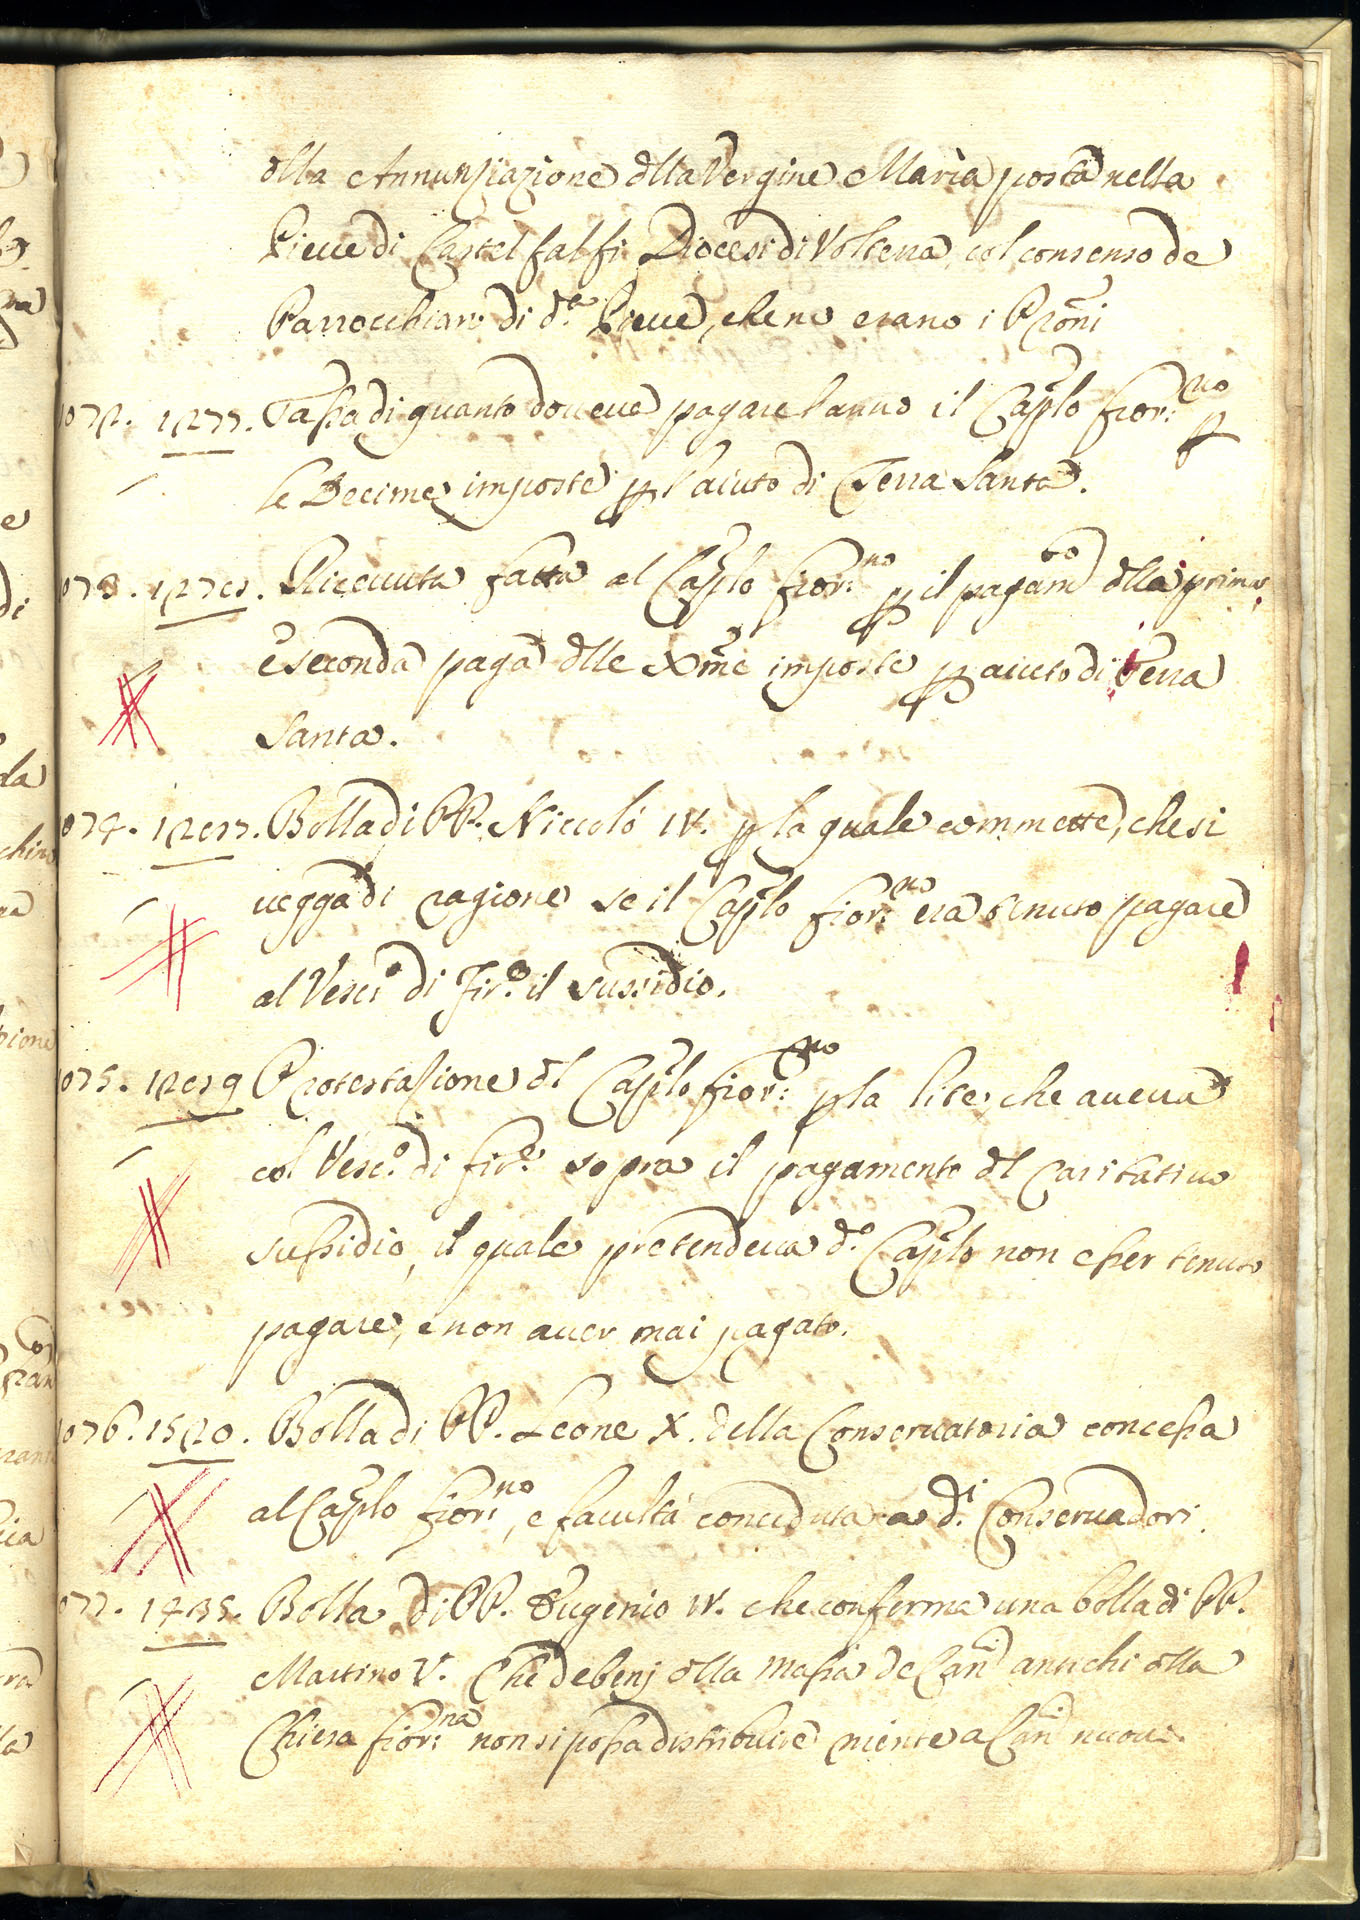 dlla Annunziazione dlla Vergine Maria posta nella
Pieue di Castel falfi Diocesi di Volterra col consenso de
Parrocchiani di d.a Pieue, che ne erano i Prōni
1072. 1277. Tassa di quanto doueue pagare l'anno il Caplo fior:no p
le Decime imposte p l'aiuto di Terra Santa.
073. 127. Riceuuta fatta al Caplo fior:no p il pagam.to dlla prima,
e seconda paga dlle Xme imposte p aiuto di Terra
Santa.
074. 12. Bolla di PP. Niccolò IV. p la quale commette, che si
uegga di ragione se il Caplo fior:no era tenuto pagare
al Vesc.o di Fir.e il sussidio.
075. 12 Protestazione dl Caplo fior:no p la lite, che aueua
col Vesc.o di fir.e sopra il pagamento dl Caritatiuo
sussidio, il quale pretendeua d.o Caplo non esser tenuto
pagare, e non auer mai pagato.
076. 1520. Bolla di PP. Leone X. della Conseruatoria concessa
al Caplo fior:no, e facultà conceduta a d.i Conseruadori.
077. 1435. Bolla di PP. Eugenio IV. che conferma una bolla di PP.
Martino V. Che de beni dlla Massa de Can.i antichi dlla
Chiesa fior:na non si possa distribuire niente a Can.i nuoui.